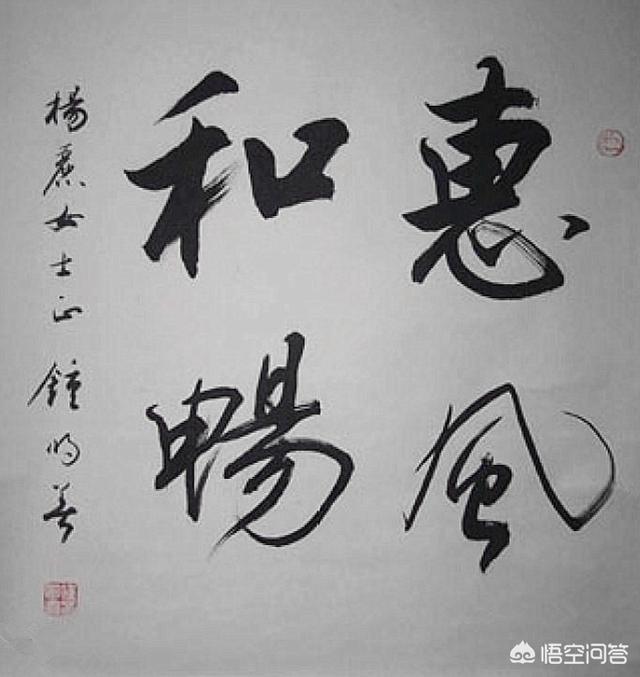 惠風
和暢
楊麗女士正 鍾明善
悟空问答